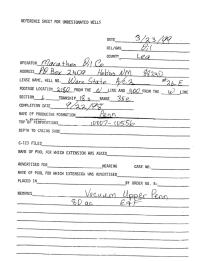 REFERENCE SHEET FOR UNDESIGNATED WELLS
DATE 3/23/99
OIL/GAS Oil
COUNTY Lea
OPERATOR Marathon Oil Co
ADDRESS PO Box 2409 Hobbs NM 88240
LEASE NAME, WELL NO. Warn State A/c 2 #26 E
FOOTAGE LOCATION 2130 FROM THE N LINE AND FROM THE W LINE
SECTION TOWNSHIP 18 s RANGE 35e
COMPLETION DATE 9/22/98
NAME OF PRODUCING FORMATION Penn
TOP OF PERFORATIONS 10107-10556
DEPTH TO CASING SHOE
C-123 FILED
NAME OF POOL FOR WHICH EXTENSION WAS ASKED
ADVERTISED FOR HEARING CASE NO:
NAME OF POOL, FOR WHICH EXTENSION WAS ADVERTISED
PLACED IN BY ORDER NO. R-
REMARKS Vacuum Upper Penn
80 ac E&F